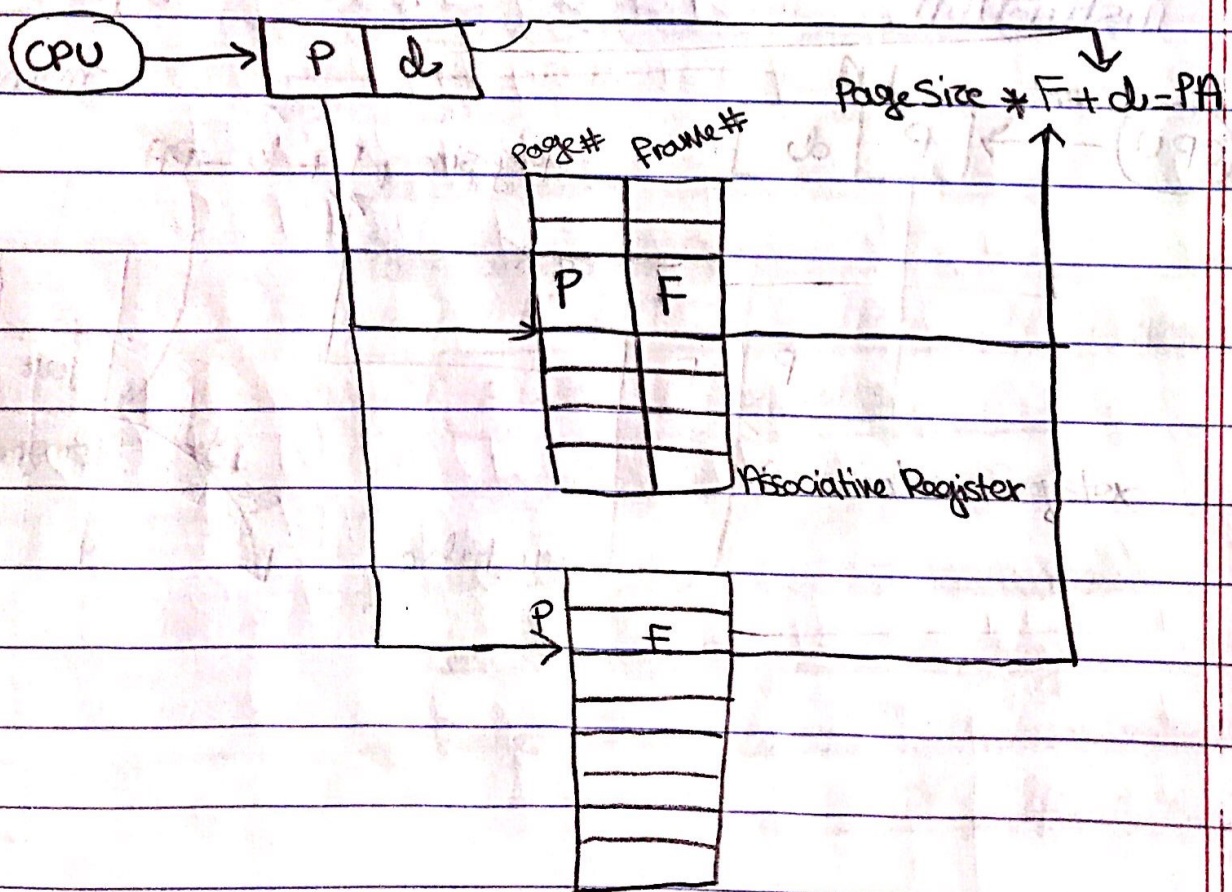 CPU P d
Page Size * F + d = PA
page# frame#
P F
Associative Register
P F